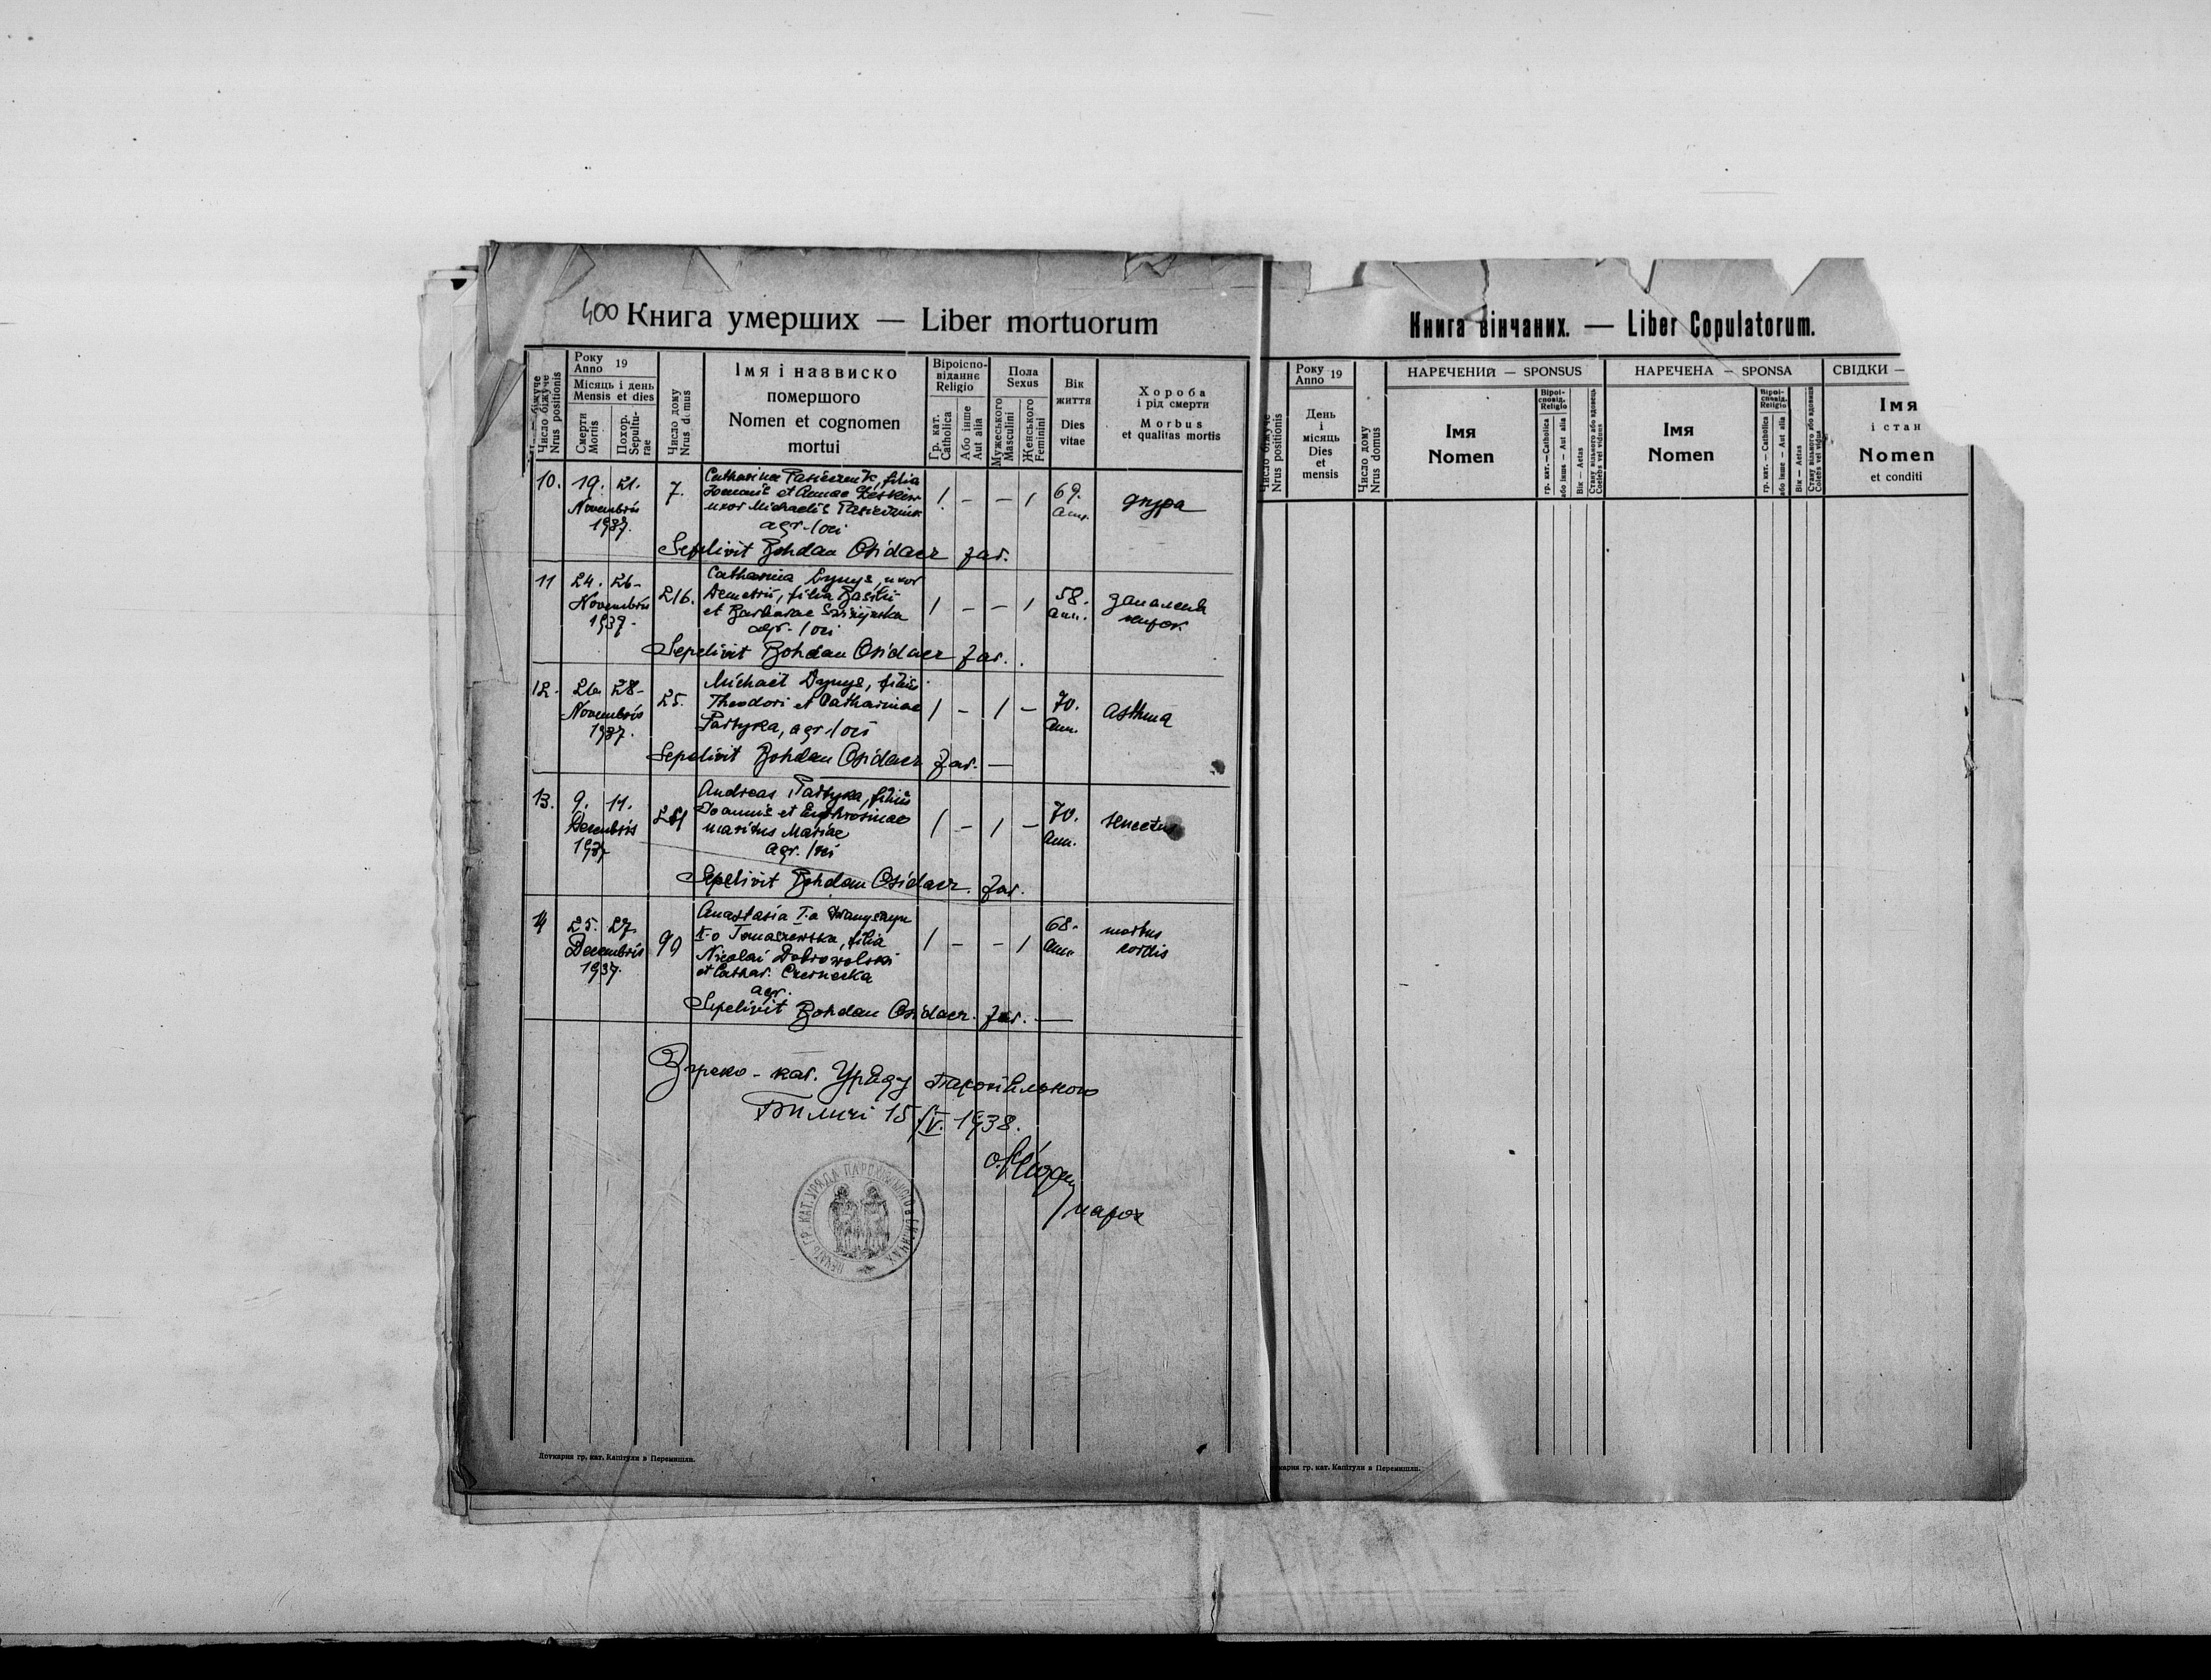 400 Книга умерших — Liber mortuorum
Число біжуче
Nrus positionis
Року
Anno 19
Місяць і день
Mensis et dies
Смерти
Mortis
Похор.
Sepultu-
rae
Число дому
Nrus domus
Імя і назвиско
помершого
Nomen et cognomen
mortui
Віроіспо-
віданнє
Religio
Гр. кат.
Catholica
Або інше
Aut alia
Пола
Sexus
Мужеського
Masculini
Женського
Feminini
Вік
життя
Dies
vitae
Хороба
і рід смерти
Morbus
et qualitas mortis
10. 19. 21. Novembris 1937. 7.
Catharina Pasiecznik, filia
Joannis et Annae
uxor Michaelis Pasiecznik
agr. loci
1 - - 1 69. ann.
Sepelivit Bohdan Osidacz zar.
11 24. 26- Novembris 1937- 216.
Catharina Dynys, uxor
Demetrii, filia Basilii
et Barbarae
agr. loci
1 - - 1 58. ann. запаленя нирок
Sepelivit Bohdan Osidacz zar.
12- 26. 28- Novembris 1937. 25.
Michael Dynys, filius
Theodori et Catharinae
Partyka, agr. loci
1 - 1 - 70. ann. asthma
Sepelivit Bohdan Osidacz zar. —
13. 9. 11. Decembris 1937
Andreas Partyka, filius
Joannis et Euphrosinae
maritus Mariae
agr. loci
1 - 1 - 70. ann. senectus
Sepelivit Bohdan Osidacz. zar.
14 25. 27. Decembris 1937.
Anastasia I-o
II-o Tomaszewska, filia
Nicolai Dobrowolski
et Cathar. Czernecka
agr.
1 - - 1 68. ann. morbus cordis
Sepelivit Bohdan Osidacz. zar. —
З греко-кат. Уряду Парохіяльного
Биличі 15/IV. 1938.
парох
ПЕЧАТЬ ГР. КАТ. УРЯДА ПАРОХІЯЛЬНОГО
Друкарня гр. кат. Капітули в Перемишли.
Книга вінчаних. — Liber Copulatorum.
Число біжуче
Nrus positionis
Року
Anno 19
День
і
місяць
Dies
et
mensis
Число дому
Nrus domus
НАРЕЧЕНИЙ — SPONSUS
Імя
Nomen
Вірої-
сповід.
Religio
гр. кат. — Catholica
або інше — Aut alia
Вік — Aetas
Стану вільного або вдовець
Coelebs vel viduus
НАРЕЧЕНА — SPONSA
Імя
Nomen
Вірої-
сповід.
Religio
гр. кат. — Catholica
або інше — Aut alia
Вік — Aetas
Стану вільного або вдовиця
Coelebs vel vidua
СВІДКИ —
Імя
і стан
Nomen
et conditi
карня гр. кат. Капітули в Перемишли.